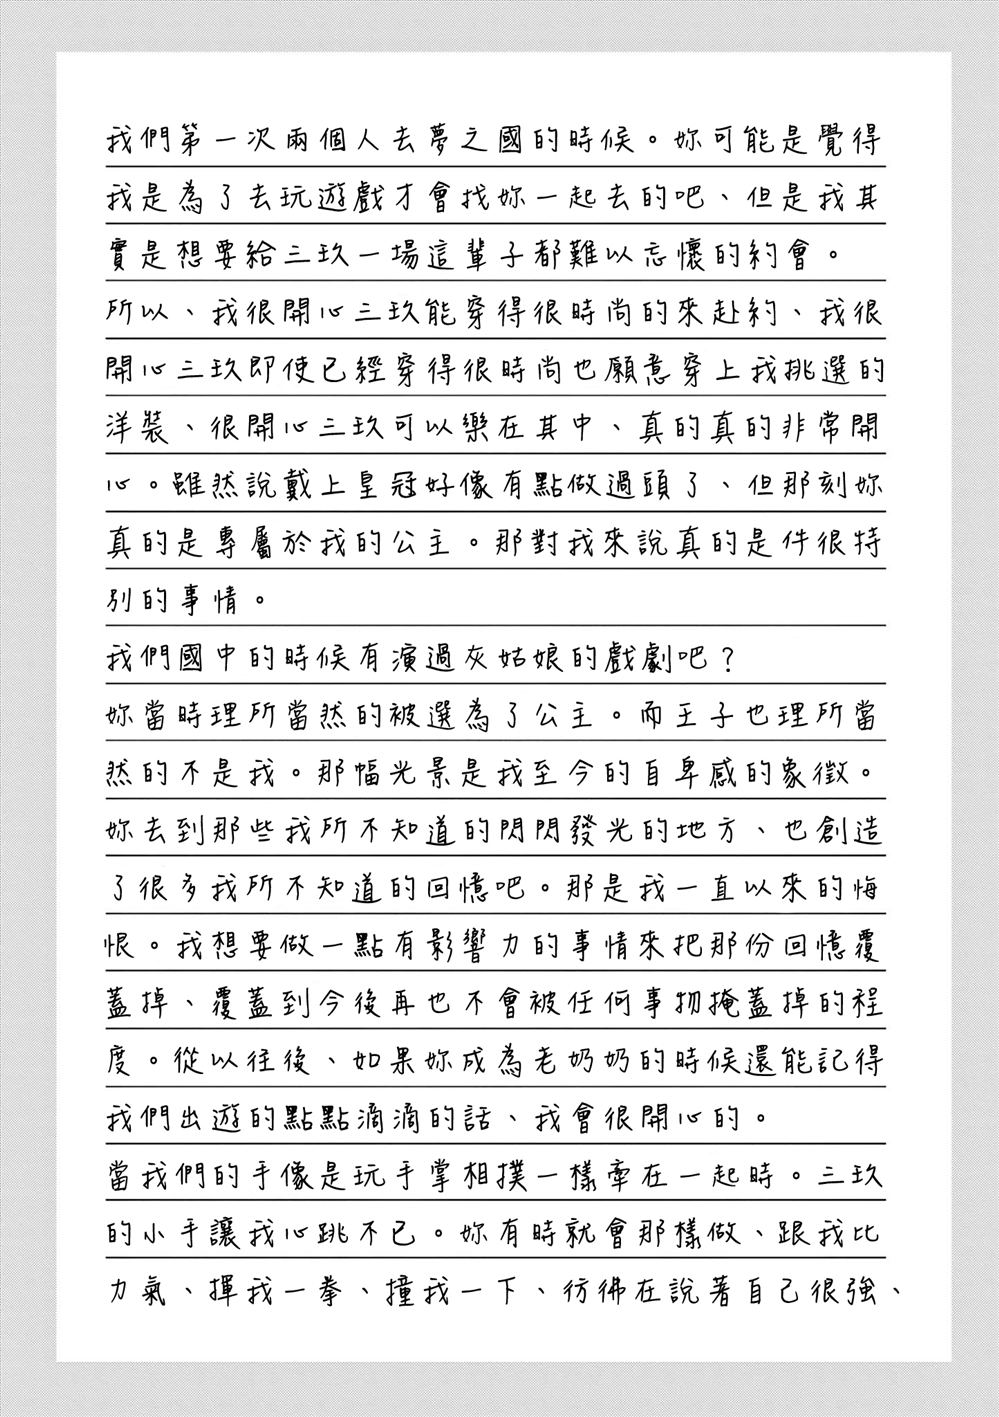 我們第一次兩個人去夢之國的時候。妳可能是覺得
我是為了去玩遊戲才會找妳一起去的吧、但是我其
實是想要給三玖一場這輩子都難以忘懷的約會。
所以、我很開心三玖能穿得很時尚的來赴約、我很
開心三玖即使已經穿得很時尚也願意穿上我挑選的
洋裝、很開心三玖可以樂在其中、真的真的非常開
心。雖然說戴上皇冠好像有點做過頭了、但那刻妳
真的是專屬於我的公主。那對我來說真的是件很特
別的事情。
我們國中的時候有演過灰姑娘的戲劇吧？
妳當時理所當然的被選為了公主。而王子也理所當
然的不是我。那幅光景是我至今的自卑感的象徵。
妳去到那些我所不知道的閃閃發光的地方、也創造
了很多我所不知道的回憶吧。那是我一直以來的悔
恨。我想要做一點有影響力的事情來把那份回憶覆
蓋掉、覆蓋到今後再也不會被任何事物掩蓋掉的程
度。從以往後、如果妳成為老奶奶的時候還能記得
我們出遊的點點滴滴的話、我會很開心的。
當我們的手像是玩手掌相撲一樣牽在一起時。三玖
的小手讓我心跳不已。妳有時就會那樣做、跟我比
力氣、揮我一拳、撞我一下、彷彿在說著自己很強、